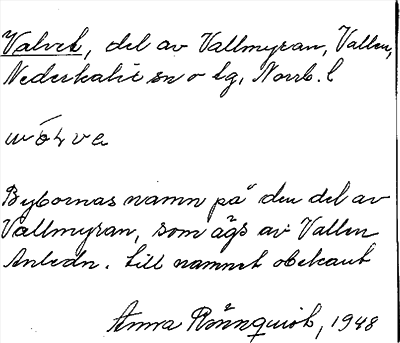 Valvet, del av Vallmyran, Vallen,
Nederkalix sn o tg, Norrb. l
Bybornas namn på den del av
Vallmyran, som ägs av Vallen
Anledn. till namnet obekant
Anna Rönnquist, 1948